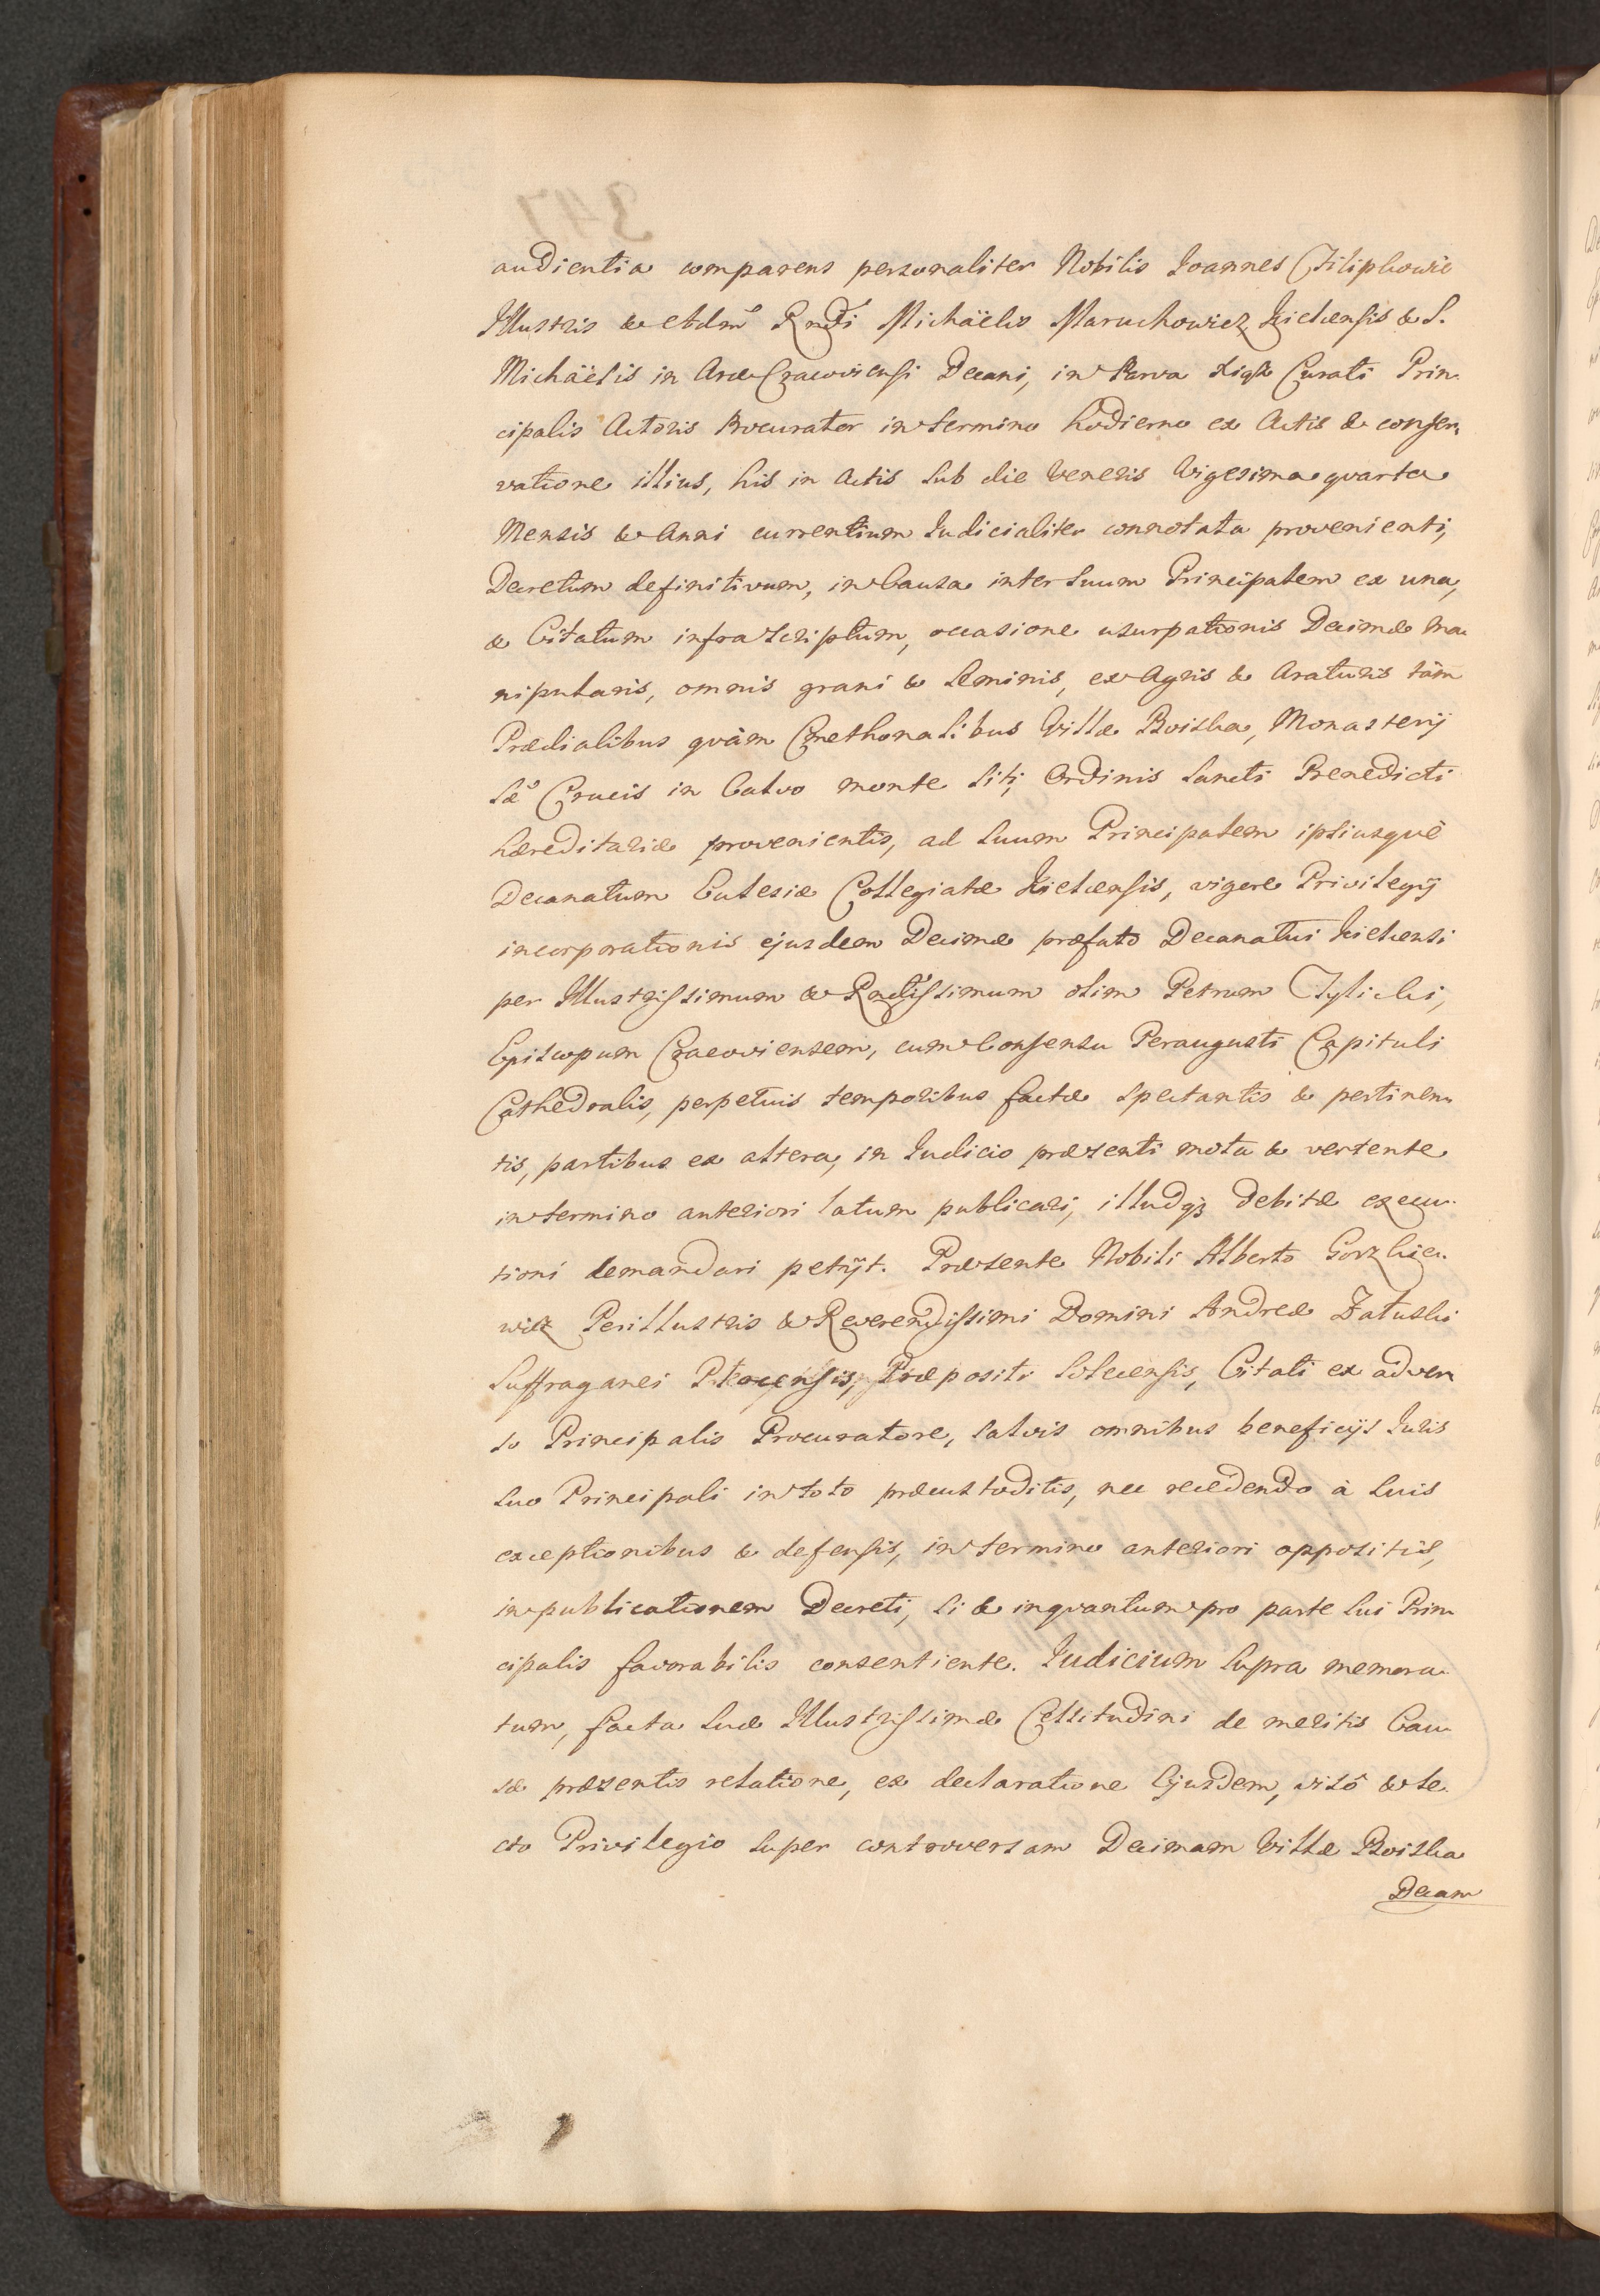 audientia comparens personaliter Nobilis Joannes Filipkowic
Illustris & Adm̃ Rndi Michaëlis Maruchowicz Kielcensis & S.
Michäelis in Arce Cracoviensi Decani, in Parva Curati Prin-
cipalis Actoris Procurator in termino hodierno ex Actis & conser-
vatione illius, his in Actis sub die Veneris Vigesima qvarta
Mensis & Anni currentium Judicialiter connotata provenienti,
Decretum definitivum, in Causa inter suum Principalem ex una,
& Citatum infrascriptum, occasione usurpationis Decimæ ma-
nipularis, omnis grani & Seminis, ex Agris & Araturis tàm
Prædialibus qvàm Cmethonalibus Villæ Boiska, Monasterij
Sæ Crucis in Calvo monte siti, Ordinis Sancti Benedicti
hæreditariæ provenientis, ad suum Principalem ipsiusqvè
Decanatum Eclesiæ Collegiatæ Kielcensis, vigore Privilegij
incorporationis ejusdem Decimæ præfato Decanatui Kielcensi
per Illustrissimum & Rndissimum olim Petrum Tylicki,
Episcopum Cracoviensem, cum Consensu Peraugusti Capituli
Cathedralis, perpetuis temporibus factæ spectantis & pertinen-
tis, partibus ex altera, in Judicio præsenti mota & vertente
in termino anteriori latum publicari, illudqz debitæ execu-
tioni demandari petijt. Præsente Nobili Alberto Gorzkie-
wicz Perillustris & Reverendissimi Domini Andreæ Załuski
Suffraganei Płocensis, Præpositi Solecensis, Citati ex adver-
so Principalis Procuratore, salvis omnibus beneficijs Juris
suo Principali in toto præcustoditis, nec recedendo à suis
exceptionibus & defensis, in termino anteriori oppositis,
in publicationem Decreti, si & inqvantum pro parte sui Prin-
cipalis favorabilis consentiente. Judicium supra memora-
tum, facta suæ Illustrissimæ Celsitudini de meritis Cau-
sæ præsentis relatione, ex declaratione Ejusdem, visô & le-
cto Privilegio super controversam Decimam Villæ Boiska
Decan